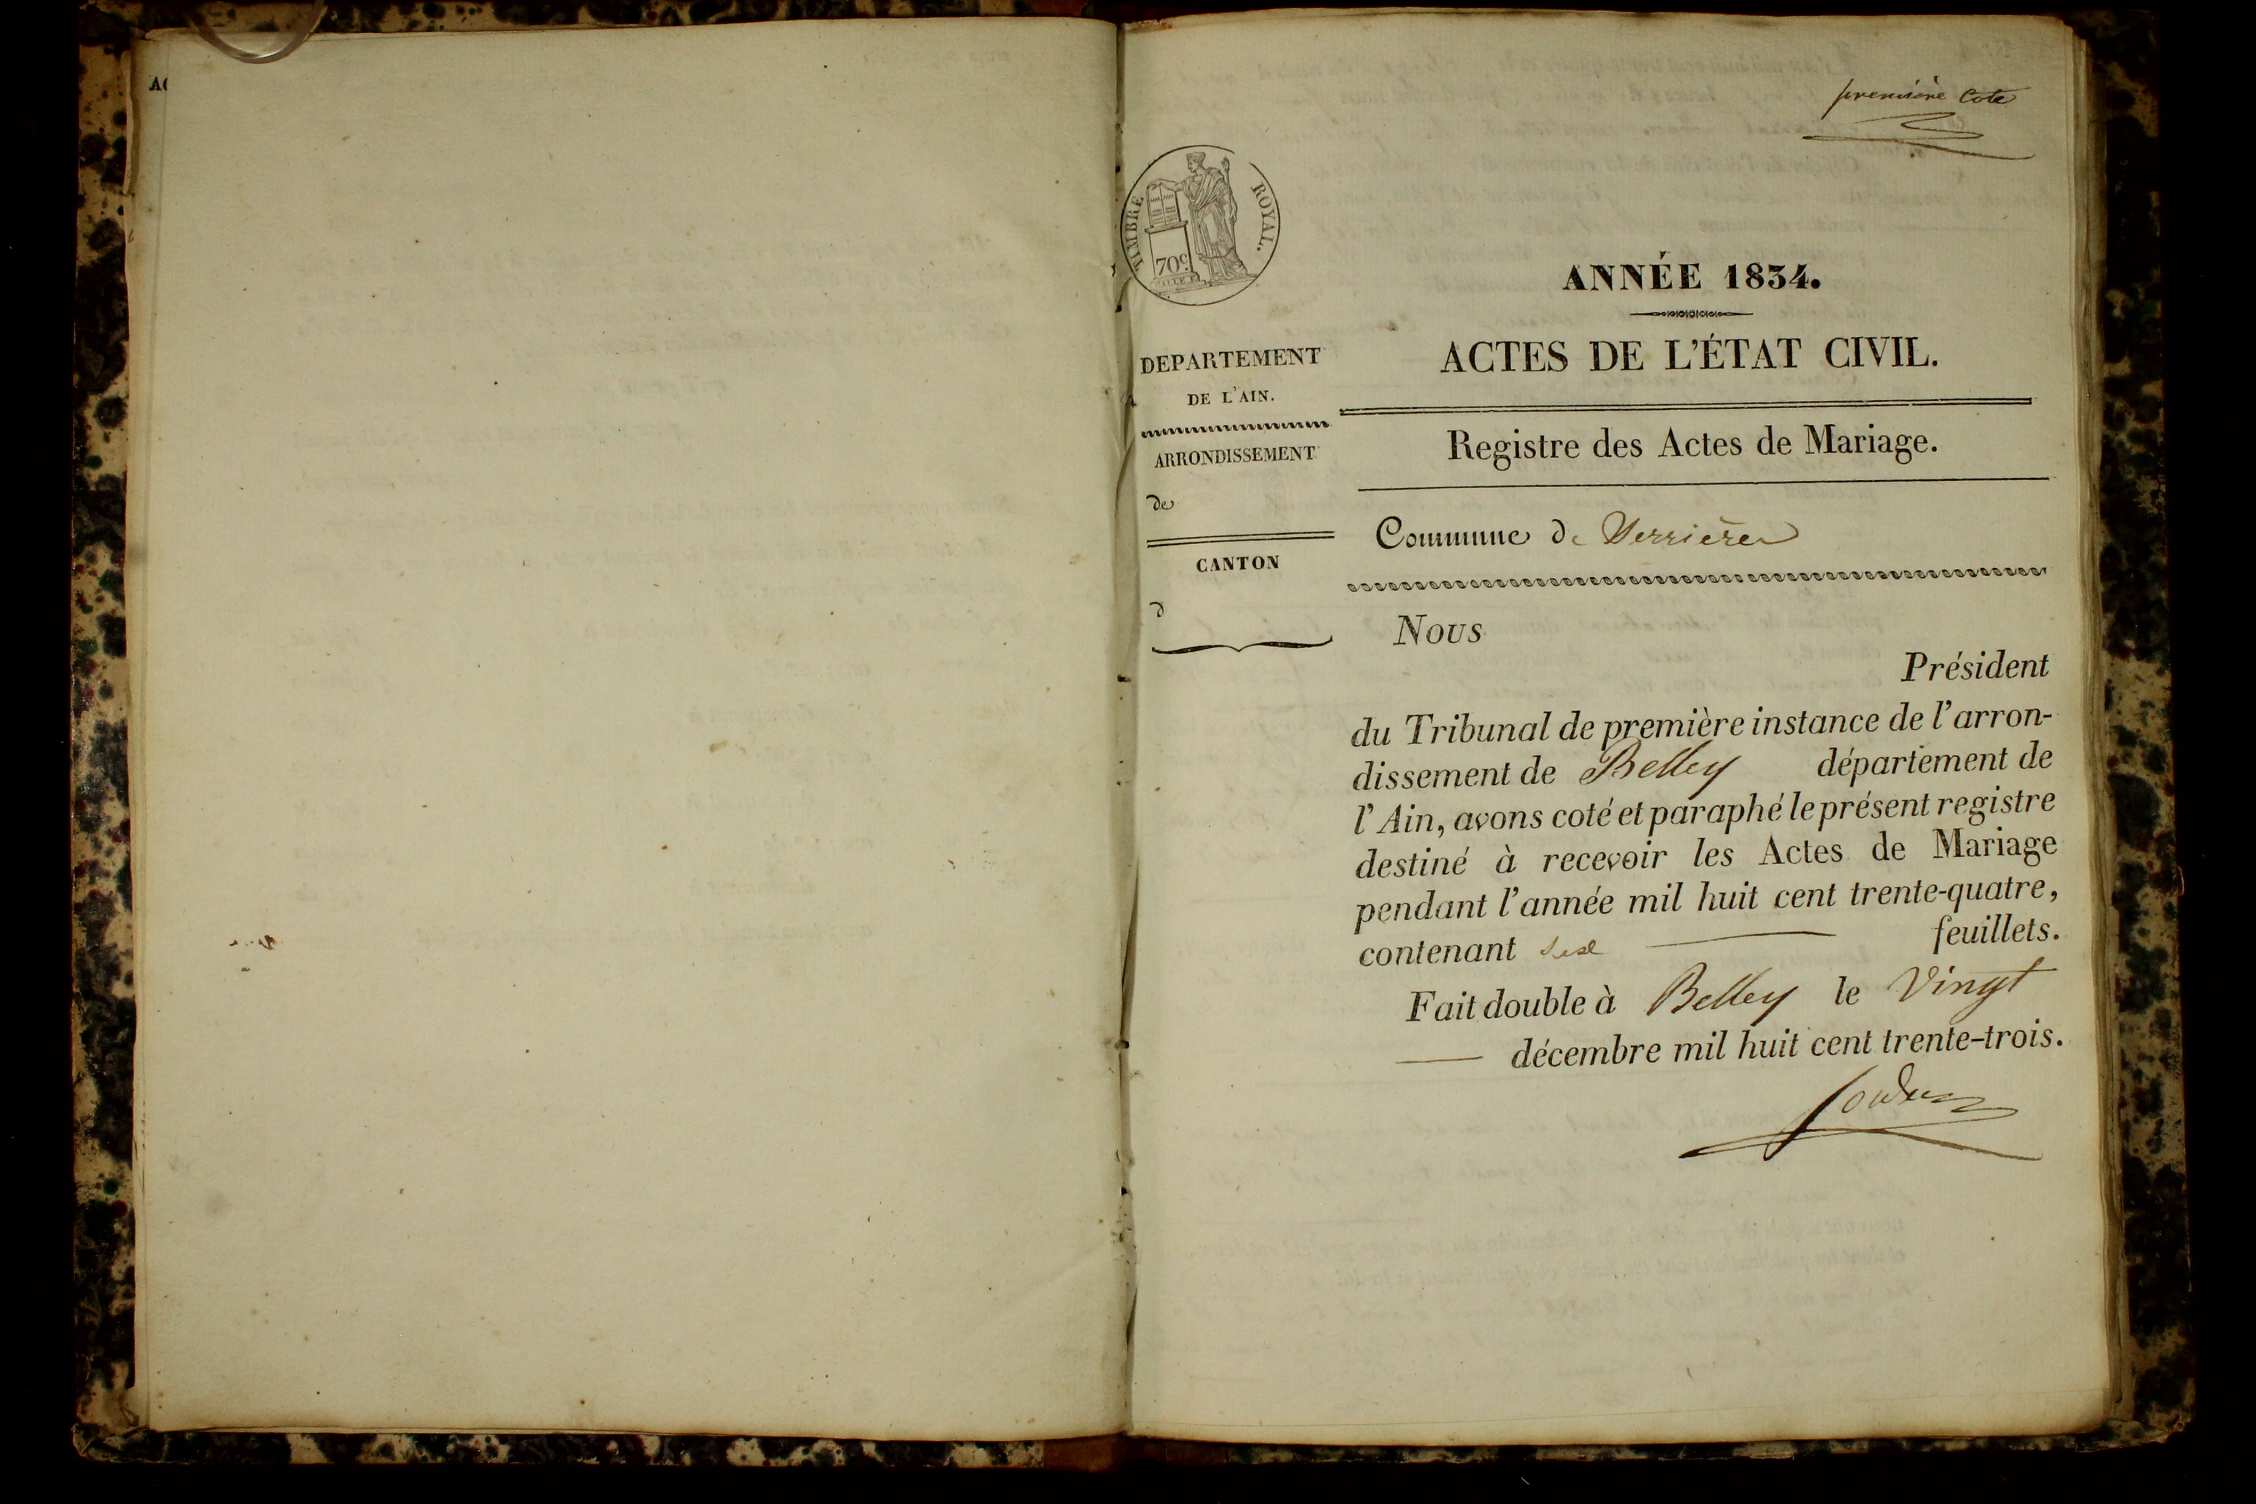 première Cote
TIMBRE ROYAL.
70c.
ANNÉE 1834.
ACTES DE L'ÉTAT CIVIL.
Registre des Actes de Mariage.
DEPARTEMENT
DE L'AIN.
ARRONDISSEMENT
de
CANTON
d
Commune de
Nous
Président
du Tribunal de première instance de l'arron-
dissement de Belley département de
l'Ain, avons coté et paraphé le présent registre
destiné à recevoir les Actes de Mariage
pendant l'année mil huit cent trente-quatre,
contenant six feuillets.
Fait double à Belley le Vingt
décembre mil huit cent trente-trois.